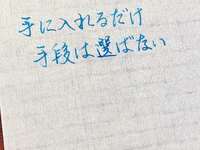 手に入れるだけ
手段は選ばない